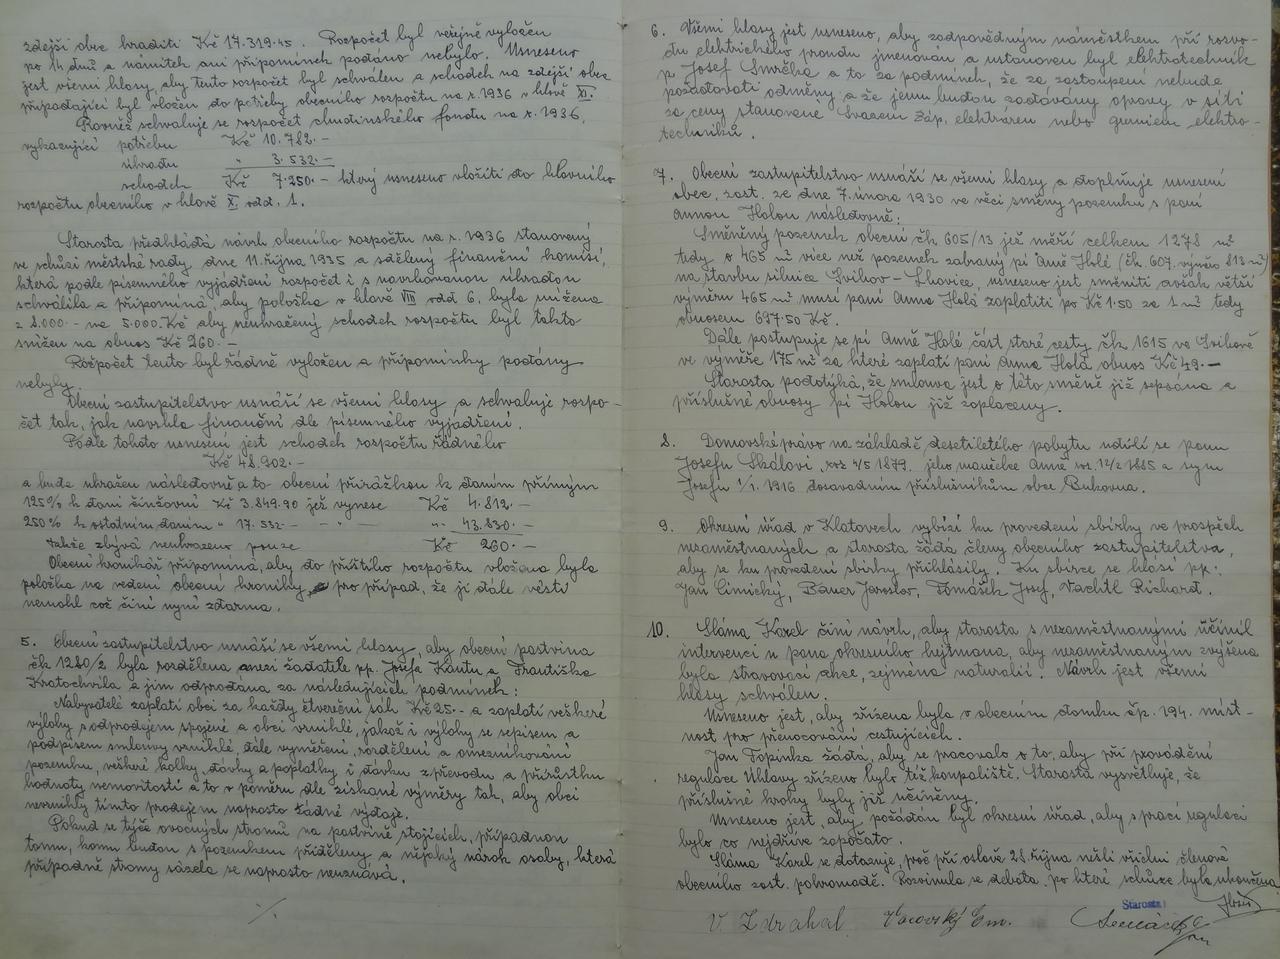 zdejší obce hraditi Kč 17.319.45. Rozpočet byl veřejně vyložen
po 14 dnů a námitek ani připomínek podáno nebylo. Usneseno
jest všemi hlasy, aby tento rozpočet byl schválen a schodek na zdejší obec
připadající byl vložen do potřeby obecního rozpočtu na r. 1936 v hlavě XI.
Rovněž schvaluje se rozpočet chudinského fondu na r. 1936,
vykazující potřebu Kč 10.782.-
úhradu " 3.532.-
schodek Kč 7.250.- který usneseno vložiti do hlavního
rozpočtu obecního v hlavě X. odd. 1.
Starosta předkládá návrh obecního rozpočtu na r. 1936 stanovený
ve schůzi městské rady dne 11. října 1935 a sdělený finanční komisi,
která podle písemného vyjádření rozpočet i s navrhovanou úhradou
schválila a připomíná, aby položka v hlavě VIII odd 6. byla snížena
z 8.000.- na 5.000.Kč aby neuhražený schodek rozpočtu byl takto
snížen na obnos Kč 260.-
Rozpočet tento byl řádně vyložen a připomínky podány
nebyly.
Obecní zastupitelstvo usnáší se všemi hlasy a schvaluje rozpo-
čet tak, jak navrhla finanční dle písemného vyjádření.
Podle tohoto usnesení jest schodek rozpočtu řádného
Kč 48.902.-
a bude uhražen následovně a to obecní přirážkou k daním přímým
125% k dani činžovní Kč 3.849.90 jež vynese Kč 4.812.-
250% k ostatním daním " 17.532.- - " - " 43.830.-
takže zbývá neuhrazeno pouze Kč 260.-
Obecní kronikář připomíná, aby do příštího rozpočtu vložena byla
položka na vedení obecní kroniky, pro případ, že ji dále vésti
nemohl což činí nyní zdarma.
5. Obecní zastupitelstvo usnáší se všemi hlasy, aby obecní pastvina
čk 1280/2 byla rozdělena mezi žadatele pp. Josefa Kantu a Františka
Kratochvíla a jim odprodána za následujících podmínek:
Nabyvatelé zaplatí obci za každý čtvereční sáh Kč 25.- a zaplatí veškeré
výlohy s odprodejem spojené a obci vzniklé, jakož i výlohy se sepisem a
podpisem smlouvy vzniklé, dále vyměření, rozdělení a omezníkování
pozemku, veškeré kolky, dávky a poplatky i dávku z převodu a přírůstku
hodnoty nemovitostí a to v poměru dle získané výměry tak, aby obci
nevznikly tímto prodejem naprosto žádné výdaje.
Pokud se týče ovocných stromů na pastvině stojících, připadnou
tomu, komu budou s pozemkem přiděleny a nějaký nárok osoby, která
případně stromy sázela se naprosto neuznává.
./.
6. Všemi hlasy jest usneseno, aby zodpovědným náměstkem při rozvo-
du elektrického proudu jmenován a ustanoven byl elektrotechnik
p Josef Smrčka a to za podmínek, že za zastoupení nebude
požadovati odměny a že jemu budou zadávány opravy v síti
za ceny stanovené Svazem Záp. elektráren nebo gremiem elektro-
techniků.
7. Obecní zastupitelstvo usnáší se všemi hlasy a doplňuje usnesení
obec. zast. ze dne 7. února 1930 ve věci směny pozemku s paní
Annou Holou následovně:
Směněný pozemek obecní čk 605/13 jež měří celkem 1278 m²
tedy o 465 m² více než pozemek zabraný pí Anně Holé (čk. 607. výměře 813 m²)
na stavbu silnice Svihov - Lhovice, usneseno jest směniti avšak větší
výměru 465 m² musí paní Anna Holá zaplatiti po Kč 1.50 za 1 m² tedy
obnosem 697.50 Kč.
Dále postupuje se pí Anně Holé část staré cesty čk. 1615 ve Svihově
ve výměře 175 m² za které zaplatí paní Anna Holá obnos Kč 49.-
Starosta podotýká, že smlouva jest o této směně již sepsána a
příslušné obnosy pí Holou již zaplaceny.
8. Domovské právo na základě desetiletého pobytu udílí se panu
Josefu Skálovi, roz 4/5 1879, jeho manželce Anně roz. 12/2 1885 a synu
Josefu 1/1. 1916 dosavadním příslušníkům obce Bukovna.
9. Okresní úřad v Klatovech vybízí ku provedení sbírky ve prospěch
nezaměstnaných a starosta žádá členy obecního zastupitelstva,
aby se ku provedení sbírky přihlásily. Ku sbírce se hlásí pp:
Jan Cimický, Bauer Jaroslav, Tomášek Josef, Vachtl Richard.
10. Sláma Karel činí návrh, aby starosta s nezaměstnanými učinil
intervenci u pana okresního hejtmana, aby nezaměstnaným zvýšena
byla stravovací akce, zejména naturalií. Návrh jest všemi
hlasy schválen.
Usneseno jest, aby zřízena byla v obecním domku čp. 194. míst-
nost pro přenocování cestujících.
Jan Topinka žádá, aby se pracovalo o to, aby při provádění
regulace Úhlavy zřízeno bylo též koupaliště. Starosta vysvětluje, že
příslušné kroky byly již učiněny.
Usneseno jest, aby požádán byl okresní úřad, aby s prací regulací
bylo co nejdříve započato.
Sláma Karel se dotazuje, proč při oslavě 28. října nešli všichni členové
obecního zast. pohromadě. Rozvinula se debata, po které schůze byla ukončena.
Starosta:
V. Zdrahal